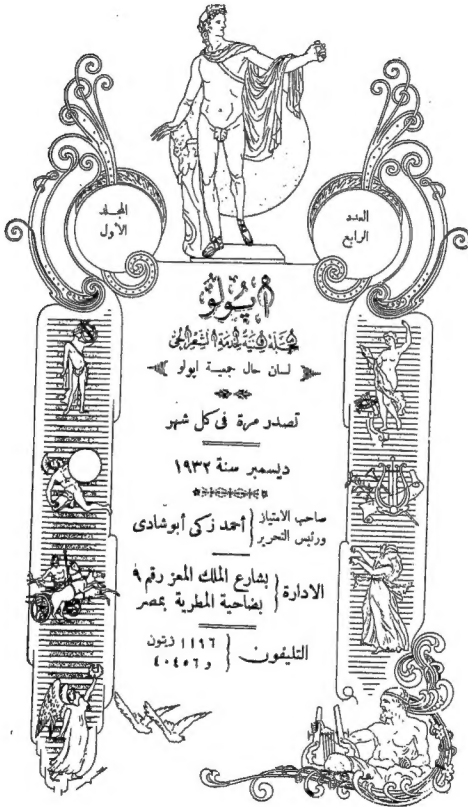 العدد
الرابع
المجلد
الأول
أپولو
مجلة فنية لخدمة الشعر الحي
لسان حال جمعية ابولو
تصدر مرة فى كل شهر
ديسمبر سنة ١٩٣٢
صاحب الامتياز
ورئيس التحرير
أحمد زكى أبو شادى
الادارة
بشارع الملك المعز رقم ٩
بضاحية المطرية بمصر
التليفون
١١٩٦ زيتون
و ٤٠٤٥٦